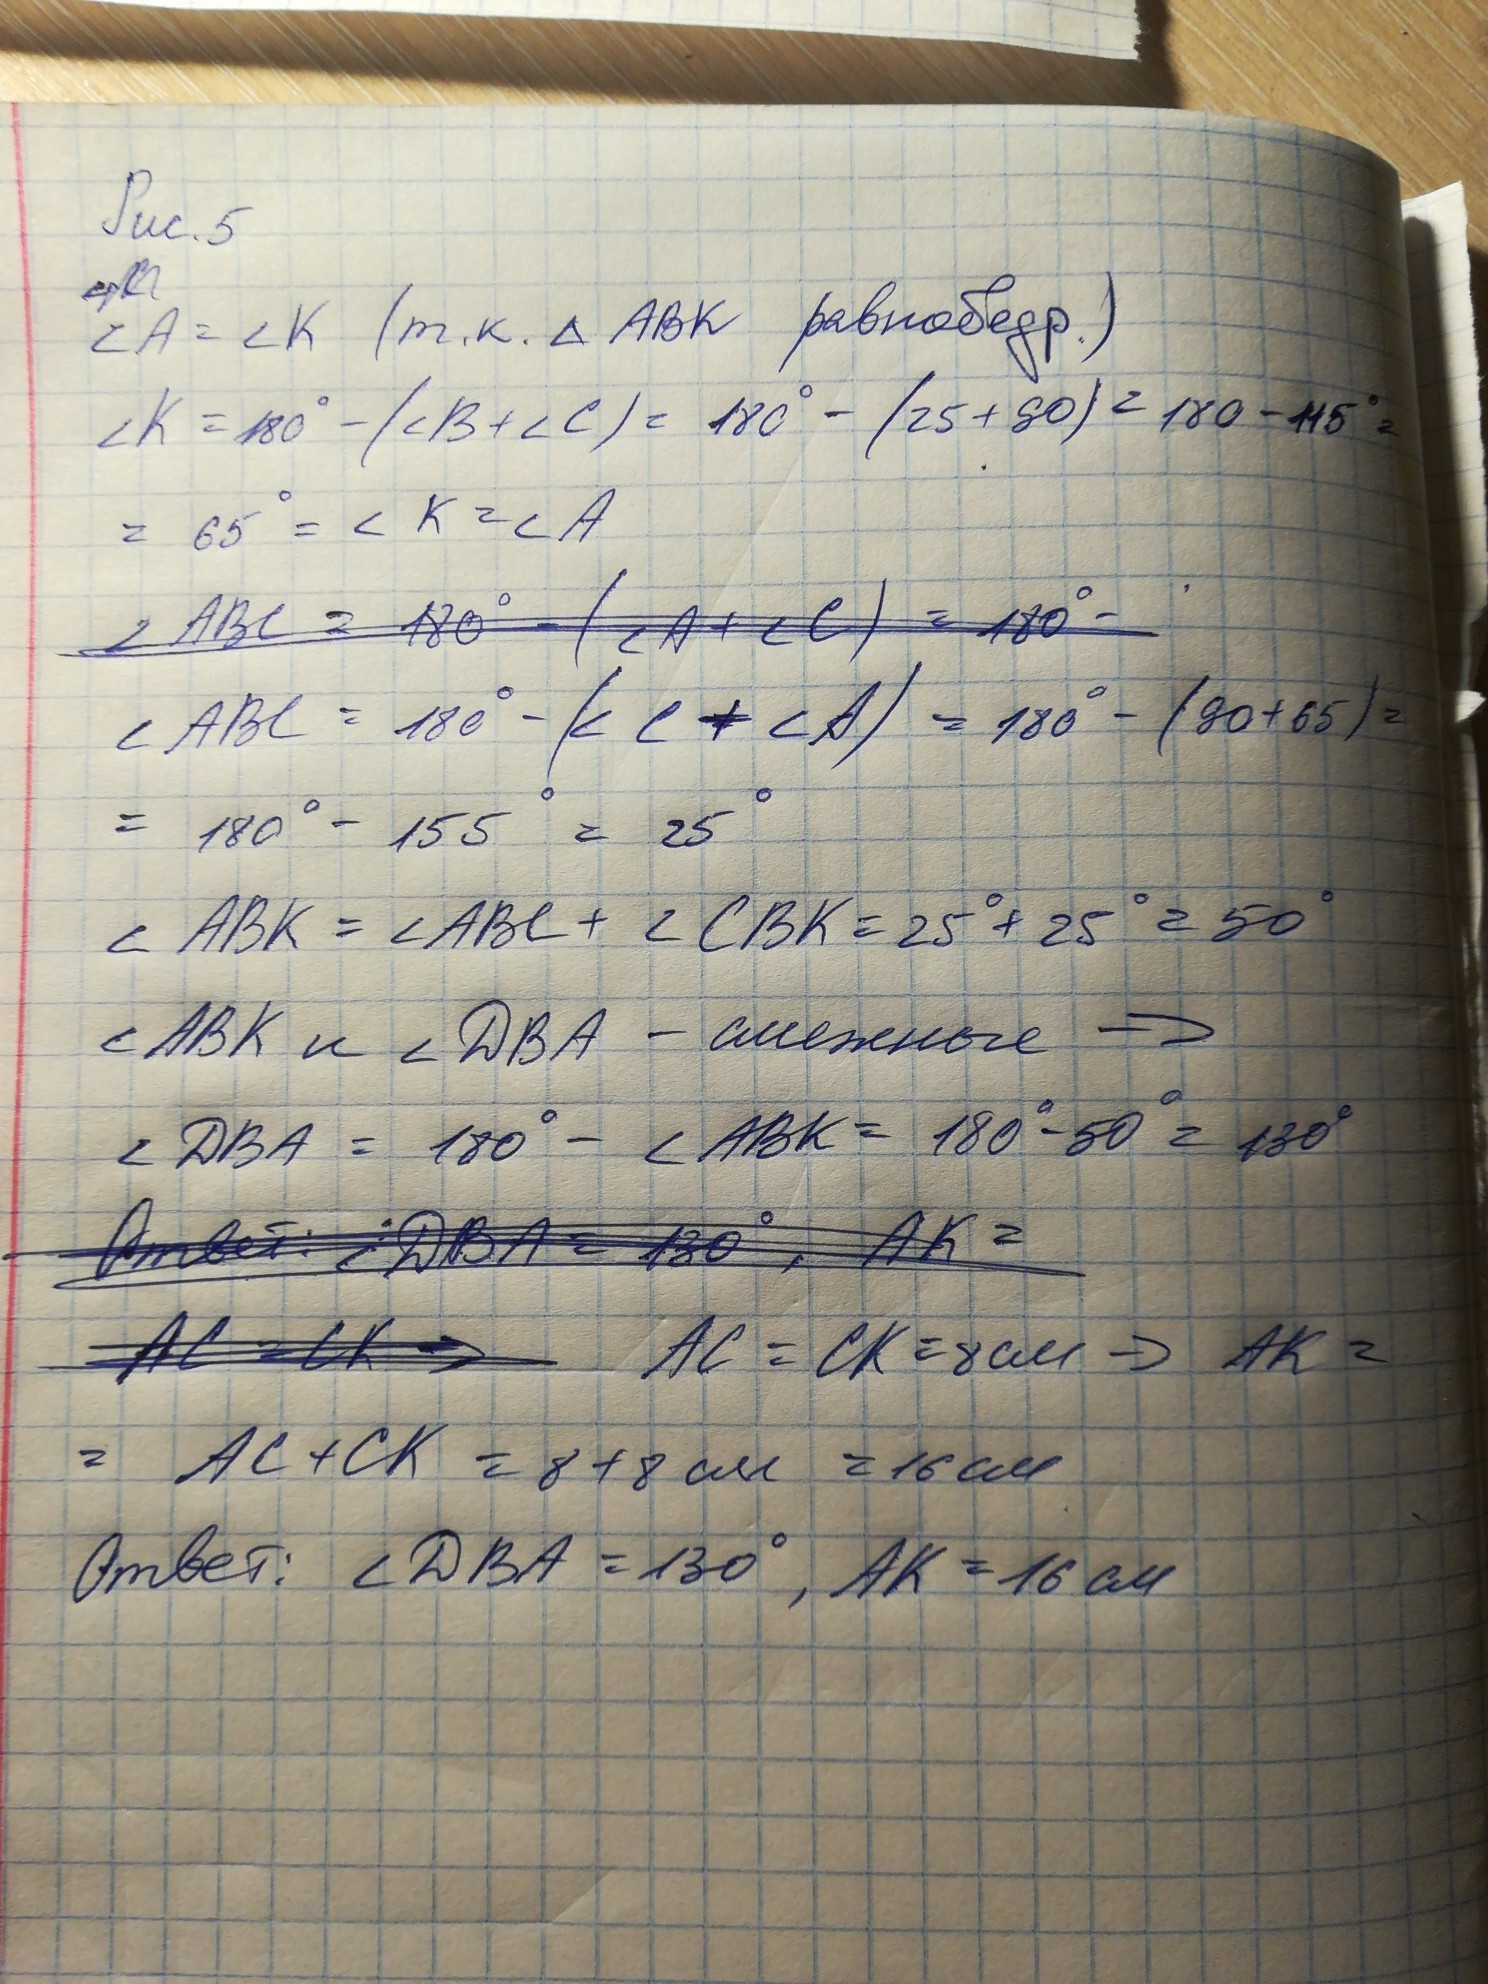 Рис. 5
∠A = ∠K (т.к. △ ABK равнобедр.)
∠K = 180° - (∠B + ∠C) = 180° - (25 + 90) = 180 - 115° =
= 65° = ∠K = ∠A
∠ABC = 180° - (∠A + ∠C) = 180° -
∠ABC = 180° - (∠C + ∠A) = 180° - (90 + 65) =
= 180° - 155° = 25°
∠ABK = ∠ABC + ∠CBK = 25° + 25° = 50°
∠ABK и ∠DBA - смежные →
∠DBA = 180° - ∠ABK = 180° - 50° = 130°
Ответ: ∠DBA = 130°, AK =
AC = CK → AC = CK = 8 см → AK =
= AC + CK = 8 + 8 см = 16 см
Ответ: ∠DBA = 130°, AK = 16 см